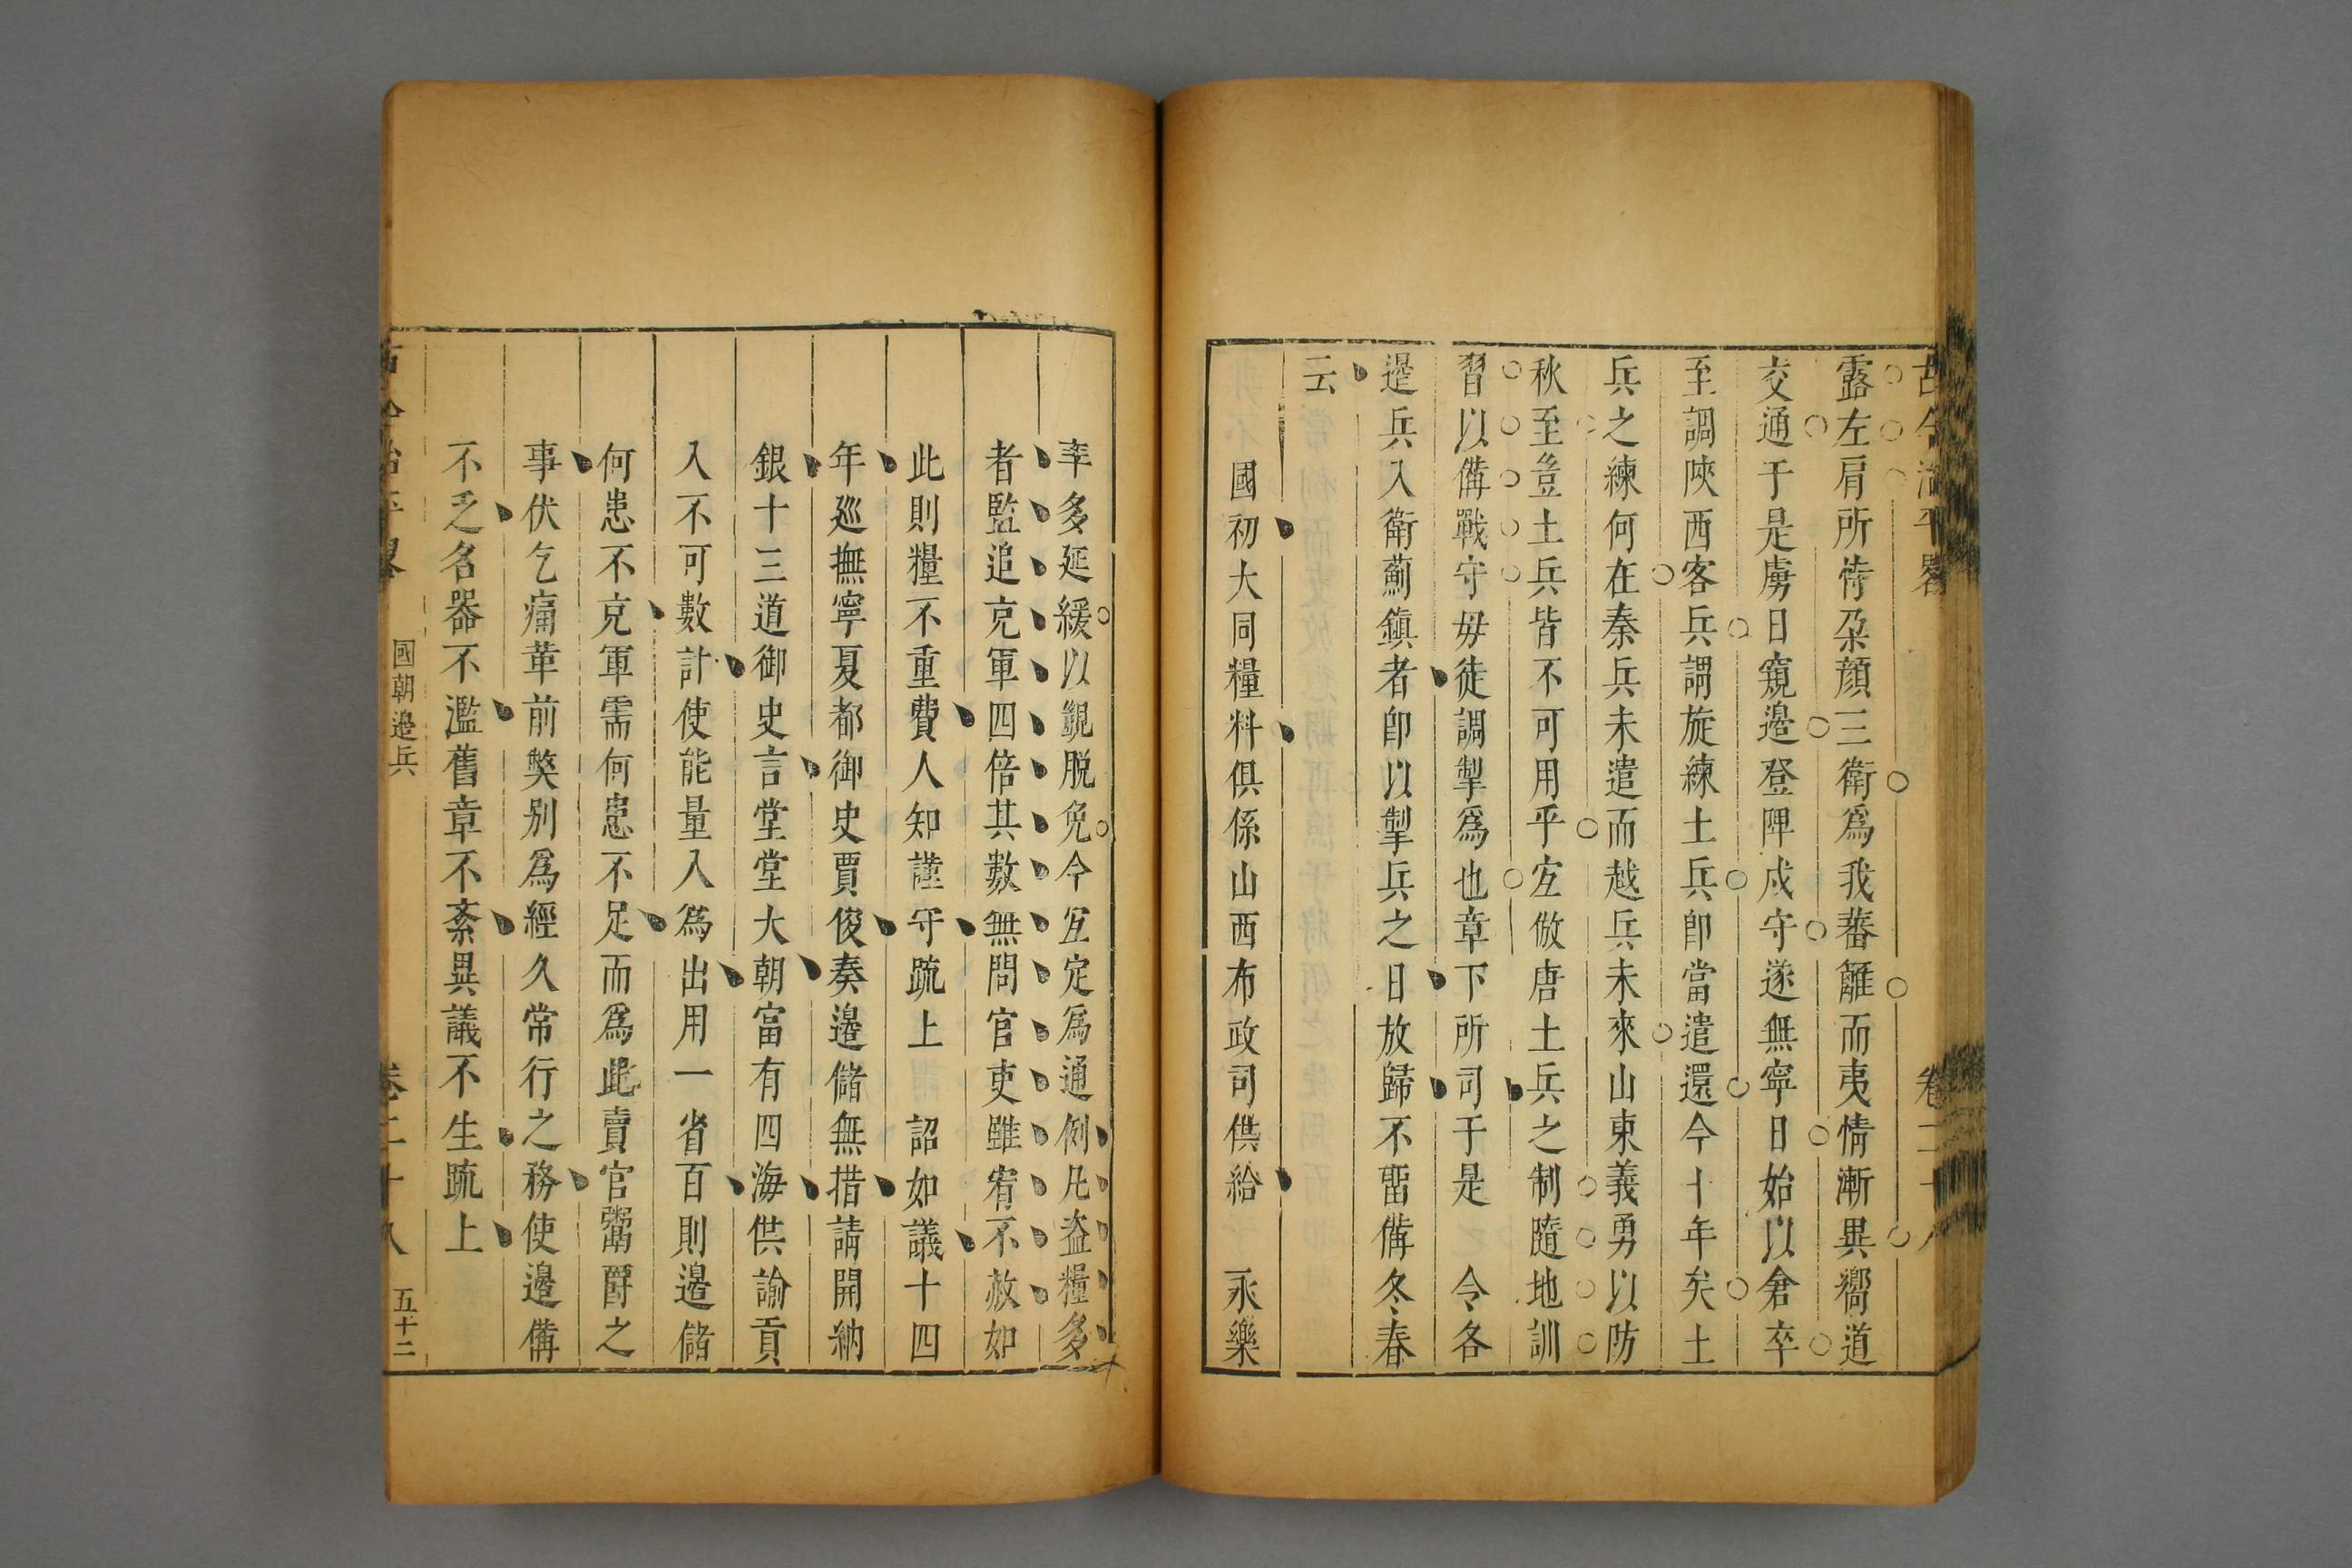 古今治平畧 卷二十八
露左肩所恃朶顔三衛爲我蕃籬而夷情漸異嚮道
交通于是虜日窺邊登陴戍守遂無寧日始以倉卒
至調陝西客兵謂旋練土兵卽當遣還今十年矣土
兵之練何在秦兵未遣而越兵未來山東義勇以防
秋至豈土兵皆不可用乎宐倣唐土兵之制隨地訓
習以備戰守毋徒調掣爲也章下所司于是 令各
邊兵入衛薊鎮者卽以掣兵之日放歸不畱備冬春
云
國初大同糧料俱係山西布政司供給 永樂
率多延緩以覬脱免今宐定爲通例凡盗糧多
者監追克軍四倍其數無問官吏雖宥不赦如
此則糧不重費人知謹守疏上 詔如議十四
年廵撫寧夏都御史賈俊奏邊儲無措請開納
銀十三道御史言堂堂大朝富有四海供諭貢
入不可數計使能量入爲出用一省百則邊儲
何患不克軍需何患不足而爲此賣官鬻爵之
事伏乞痛革前獘别爲經久常行之務使邊備
不乏名器不濫舊章不紊異議不生疏上
古今治平畧 國朝邊兵 卷二十八 五十二